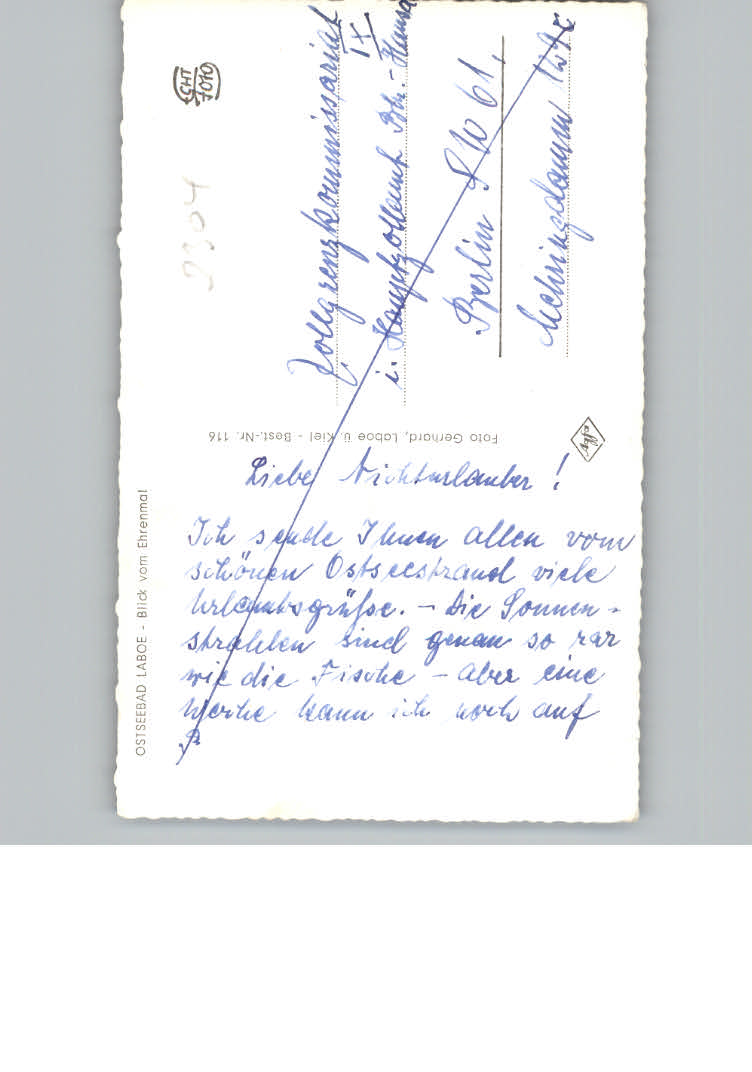 Liebe Nichturlauber!
Ich sende Ihnen allen vom
schönen Ostseestrand viele
Urlaubsgrüße. – Die Sonnen-
strahlen sind genau so rar
wie die Fische – aber eine
Woche kann ich noch auf
Zollgrenzkommissariat
IX
i. Hauptzollamt Bln.-Hansa
Berlin SW 61,
Mehringdamm
OSTSEEBAD LABOE - Blick vom Ehrenmal
Foto Gerhard, Laboe ü. Kiel - Best.-Nr. 116
ECHT
FOTO
2304